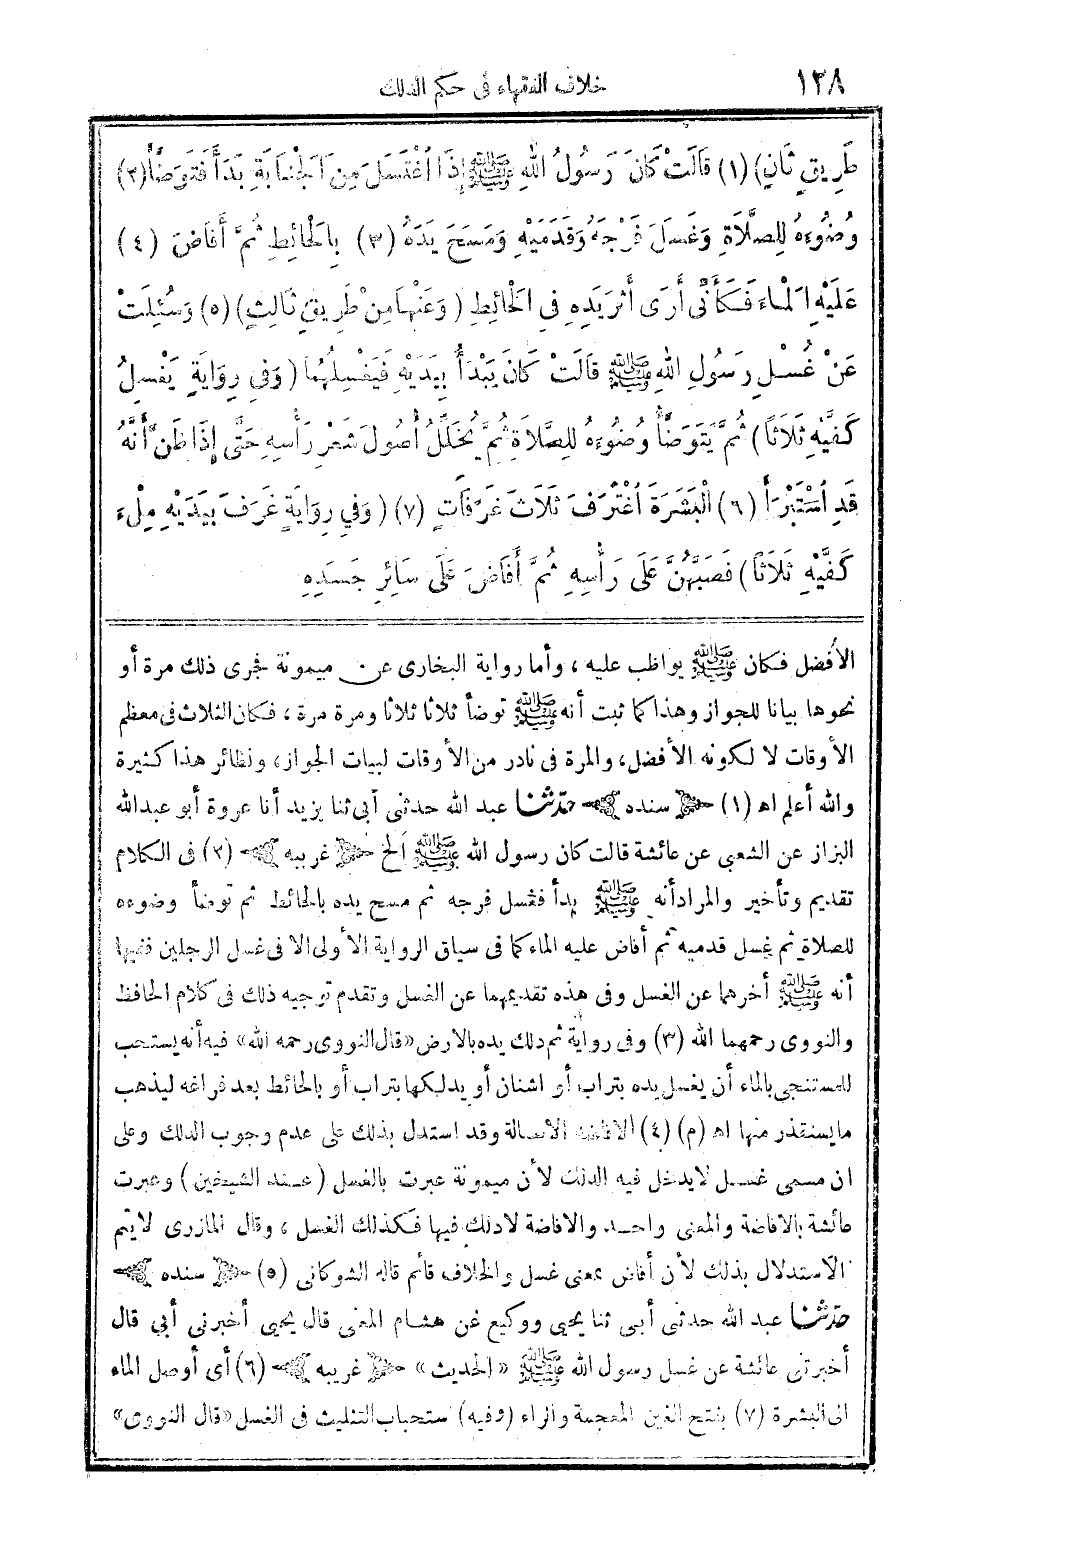 ١٣٨
خلاف الفقهاء فى حكم الدلك
طَرِيقٍ ثَانٍ) (١) قَالَتْ كَانَ رَسُولُ اللهِ ﷺ إِذَا اغْتَسَلَ مِنَ الْجَنَابَةِ بَدَأَ فَتَوَضَّأَ (٢)
وُضُوءَهُ لِلصَّلَاةِ وَغَسَلَ فَرْجَهُ وَقَدَمَيْهِ وَمَسَحَ يَدَهُ (٣) بِالْحَائِطِ ثُمَّ أَفَاضَ (٤)
عَلَيْهِ الْمَاءَ فَكَأَنِّى أَرَى أَثَرَ يَدِهِ فِى الْحَائِطِ (وَعَنْهَا مِنْ طَرِيقٍ ثَالِثٍ) (٥) وَسُئِلَتْ
عَنْ غُسْلِ رَسُولِ اللهِ ﷺ قَالَتْ كَانَ يَبْدَأُ بِيَدَيْهِ فَيَغْسِلُهُمَا (وَفِى رِوَايَةٍ يَغْسِلُ
كَفَّيْهِ ثَلَاثًا) ثُمَّ يَتَوَضَّأُ وُضُوءَهُ لِلصَّلَاةِ ثُمَّ يُخَلِّلُ أُصُولَ شَعْرِ رَأْسِهِ حَتَّى إِذَا ظَنَّ أَنَّهُ
قَدِ اسْتَبْرَأَ (٦) الْبَشَرَةَ اغْتَرَفَ ثَلَاثَ غَرَفَاتٍ (٧) (وَفِى رِوَايَةٍ غَرَفَ بِيَدَيْهِ مِلْءَ
كَفَّيْهِ ثَلَاثًا) فَصَبَّهُنَّ عَلَى رَأْسِهِ ثُمَّ أَفَاضَ عَلَى سَائِرِ جَسَدِهِ
الأفضل فكان ﷺ يواظب عليه ، وأما رواية البخارى عن ميمونة فجرى ذلك مرة أو
نحوها بيانا للجواز وهذا كما ثبت أنه ﷺ توضأ ثلاثا ثلاثا ومرة مرة ، فكان الثلاث فى معظم
الأوقات لا لكونه الأفضل، والمرة فى نادر من الأوقات لبيات الجواز، ونظائر هذا كثيرة
والله أعلم اه (١) سنده حدّثنا عبد الله حدثنى أبى ثنا يزيد أنا عروة أبو عبد الله
البزاز عن الشعبى عن عائشة قالت كان رسول الله ﷺ الخ غريبه (٢) فى الكلام
تقديم وتأخير والمراد أنه ﷺ بدأ فغسل فرجه ثم مسح يده بالحائط ثم توضأ وضوءه
للصلاة ثم غسل قدميه ثم أفاض عليه الماء كما فى سياق الرواية الأولى الا فى غسل الرجلين ففيها
أنه ﷺ أخرهما عن الغسل وفى هذه تقديمهما عن الغسل وتقدم توجيه ذلك فى كلام الحافظ
والنووى رحمهما الله (٣) وفى رواية ثم دلك يده بالارض «قال النووى رحمه الله» فيه أنه يستحب
للمستنجى بالماء أن يغسل يده بتراب أو اشنان أو يدلكها بتراب أو بالحائط بعد فراغه ليذهب
ما يستقذر منها اه (م) (٤) الافاضة الاسالة وقد استدل بذلك على عدم وجوب الدلك وعلى
ان مسمى غسل لا يدخل فيه الدلك لأن ميمونة عبرت بالغسل (عند الشيخين) وعبرت
عائشة بالافاضة والمعنى واحد والافاضة لا دلك فيها فكذلك الغسل ، وقال المازرى لا يتم
الاستدلال بذلك لأن أفاض بمعنى غسل والخلاف قائم قاله الشوكانى (٥) سنده
حدّثنا عبد الله حدثنى أبى ثنا يحيى ووكيع عن هشام المعنى قال يحيى أخبرنى أبى قال
أخبرتنى عائشة عن غسل رسول الله ﷺ «الحديث» غريبه (٦) أى أوصل الماء
الى البشرة (٧) بفتح الغين المعجمة والراء (وفيه) ستحباب التثليث فى الغسل «قال النووى»